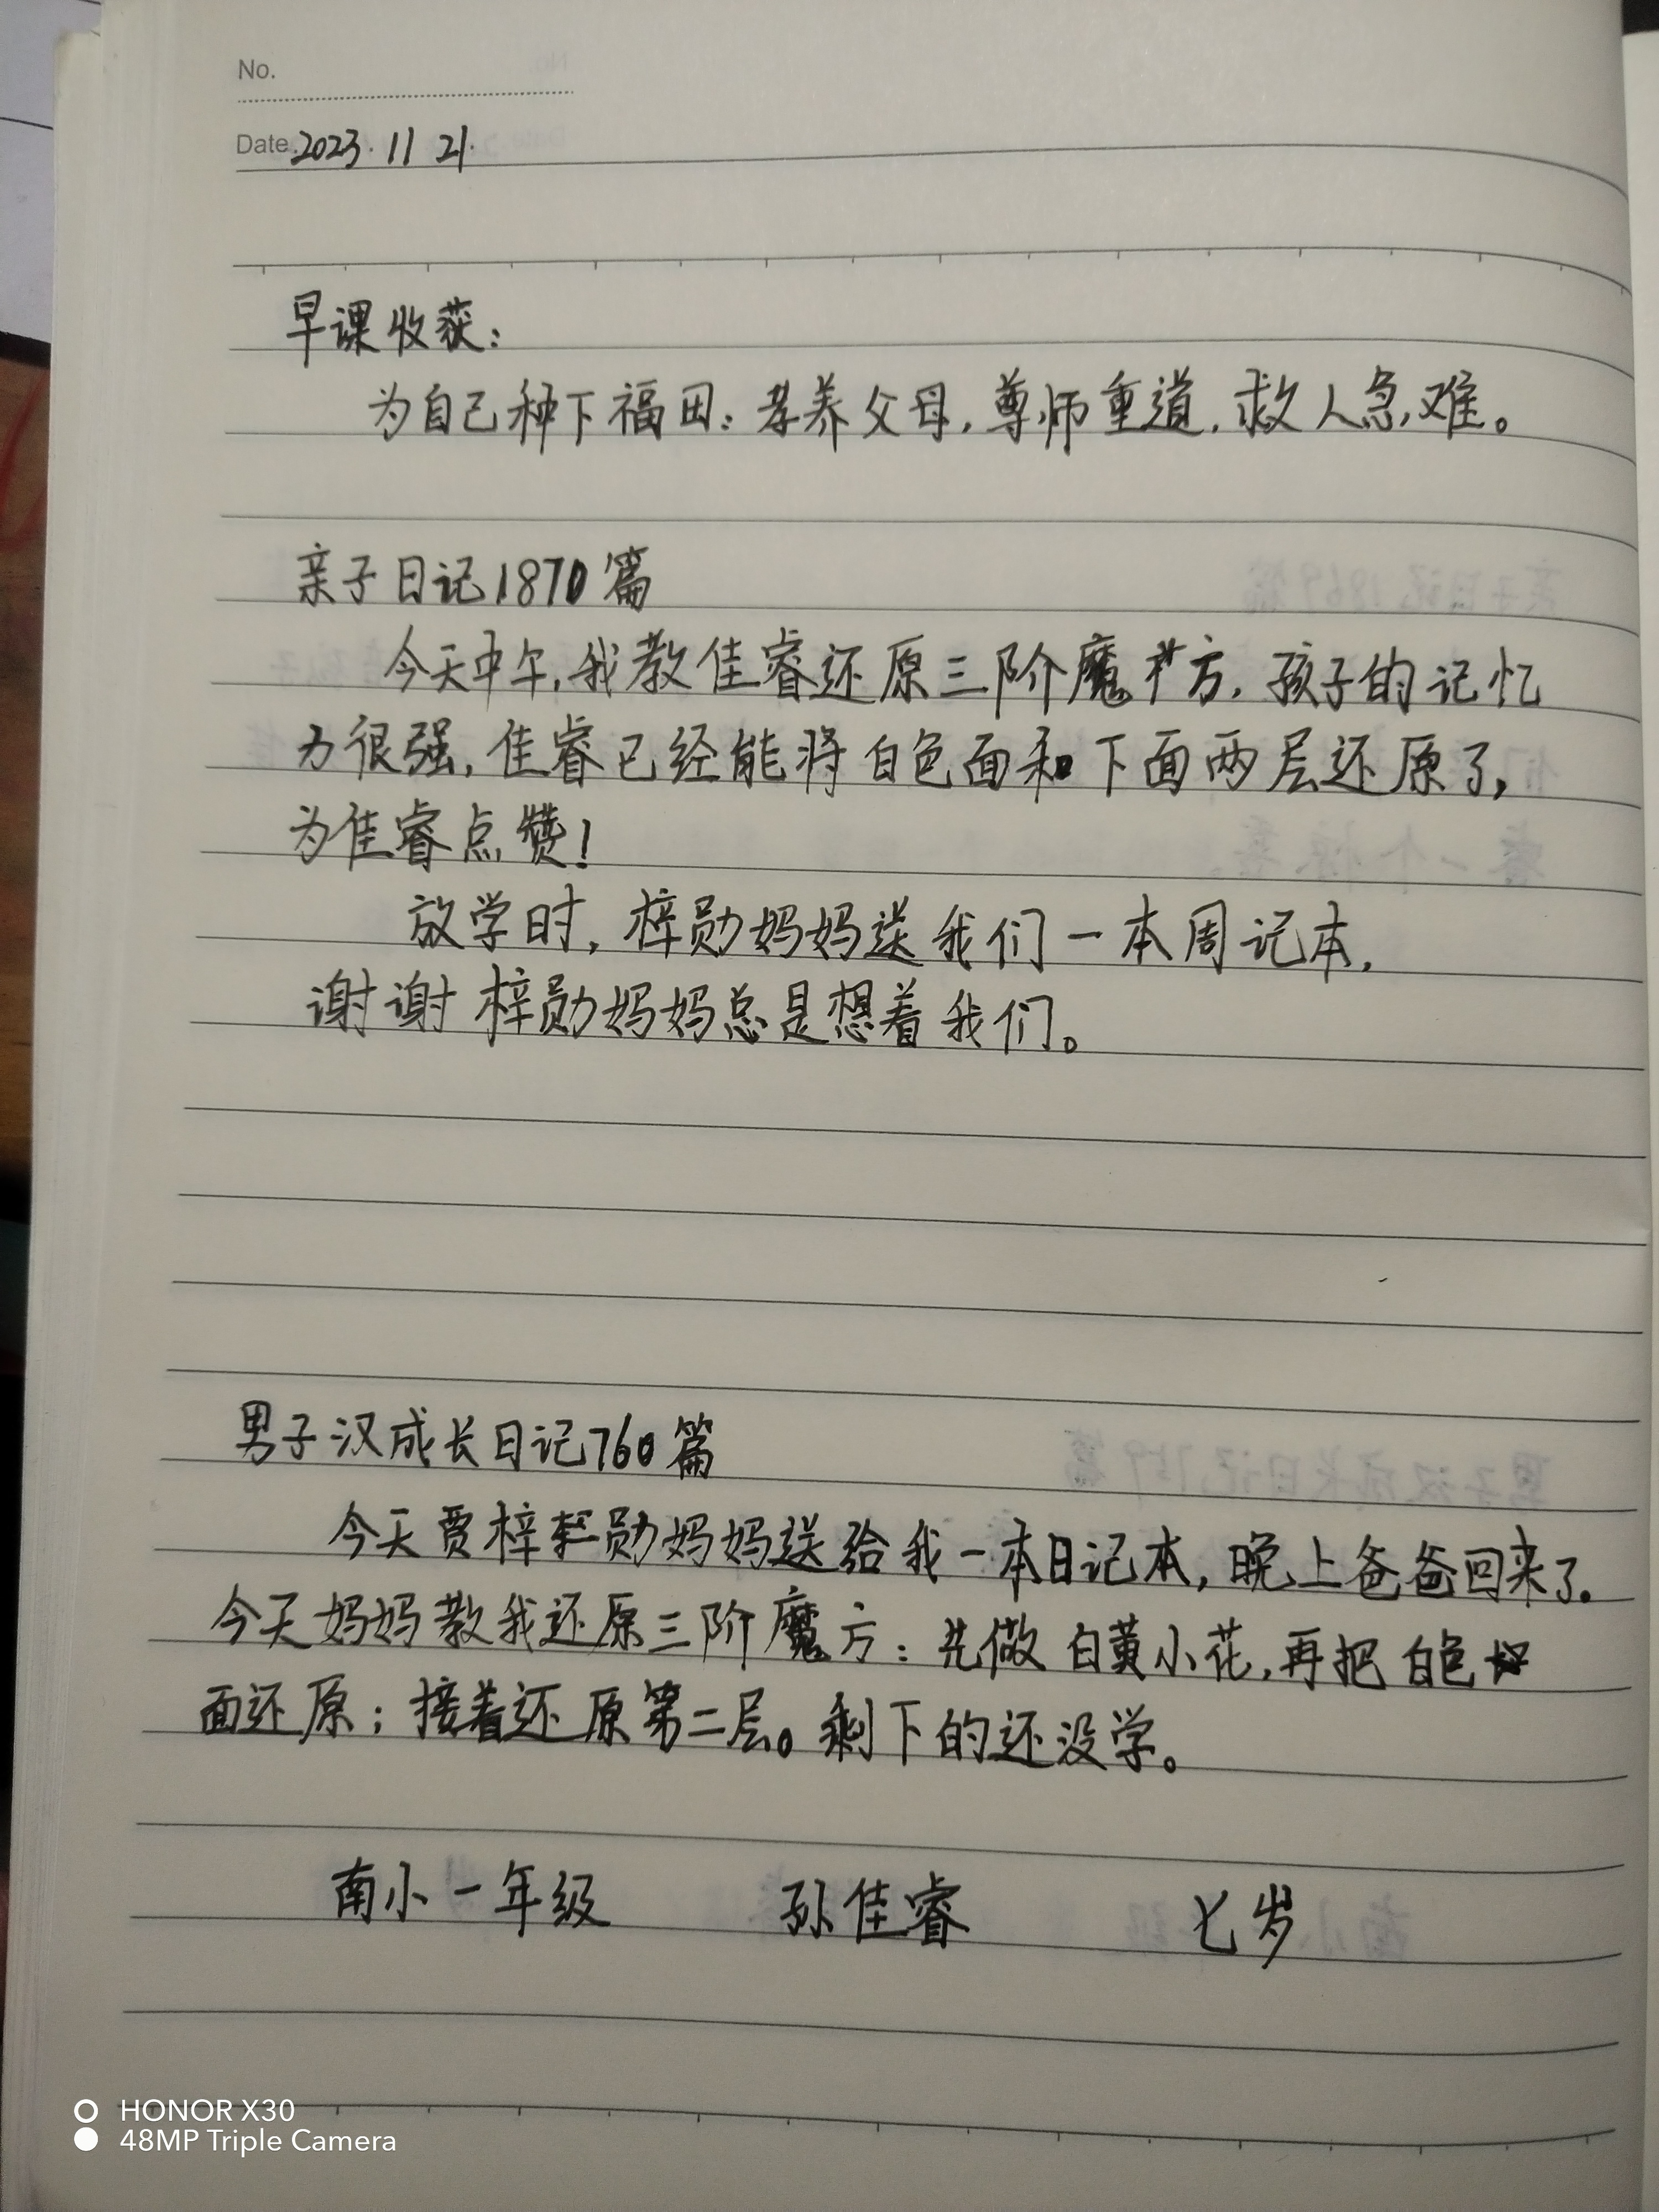 No.
Date 2023.11 21.
早课收获：
为自己种下福田：孝养父母，尊师重道，救人急难。
亲子日记1870篇
今天中午，我教佳睿还原三阶魔方，孩子的记忆
力很强，佳睿已经能将白色面和下面两层还原了，
为佳睿点赞！
放学时，梓勋妈妈送我们一本周记本，
谢谢梓勋妈妈总是想着我们。
男子汉成长日记760篇
今天贾梓勋妈妈送给我一本日记本，晚上爸爸回来了。
今天妈妈教我还原三阶魔方：先做白黄小花，再把白色
面还原；接着还原第二层。剩下的还没学。
南小一年级 孙佳睿 七岁
HONOR X30
48MP Triple Camera